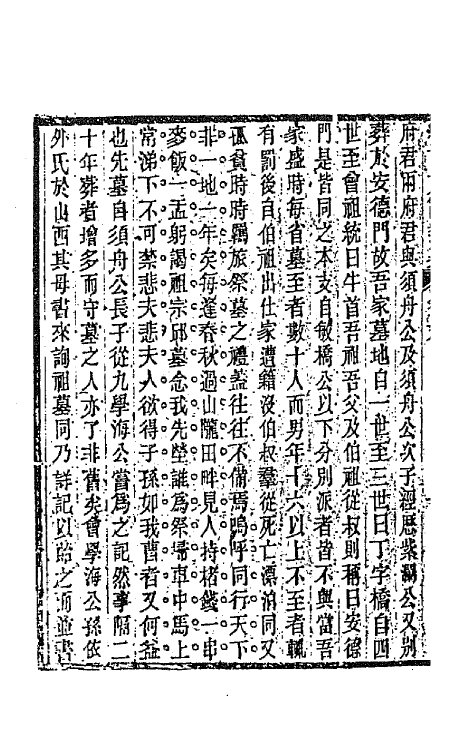 府君兩府君與須舟公及須舟公次子經歷紫瀾公又別
葬於安德門故吾家墓地自一世至三世曰丁字橋自四
世至曾祖統曰牛首吾祖吾父及伯祖從叔則稱曰安德
門是皆同之本支自敏橋公以下分別派者皆不與當吾
家盛時每省墓至者數十人而男年十六以上不至者輒
有罰後自伯祖出仕家遭籍沒伯叔羣從死亡漂泊同又
孤貧時時羈旅祭墓之禮蓋往往不備焉嗚呼同行天下
非一地一年矣每逢春秋過山隴田畔見人持楮錢一串
麥飯一盂躬謁祖宗邱墓念我先塋誰為祭掃車中馬上
常涕下不可禁悲夫悲夫人欲得子孫如我曹者又何益
也先墓自須舟公長子從九學海公嘗為之記然事隔二
十年葬者增多而守墓之人亦了非舊矣會學海公孫依
外氏於山西其母書來詢祖墓同乃詳記以貽之而並書